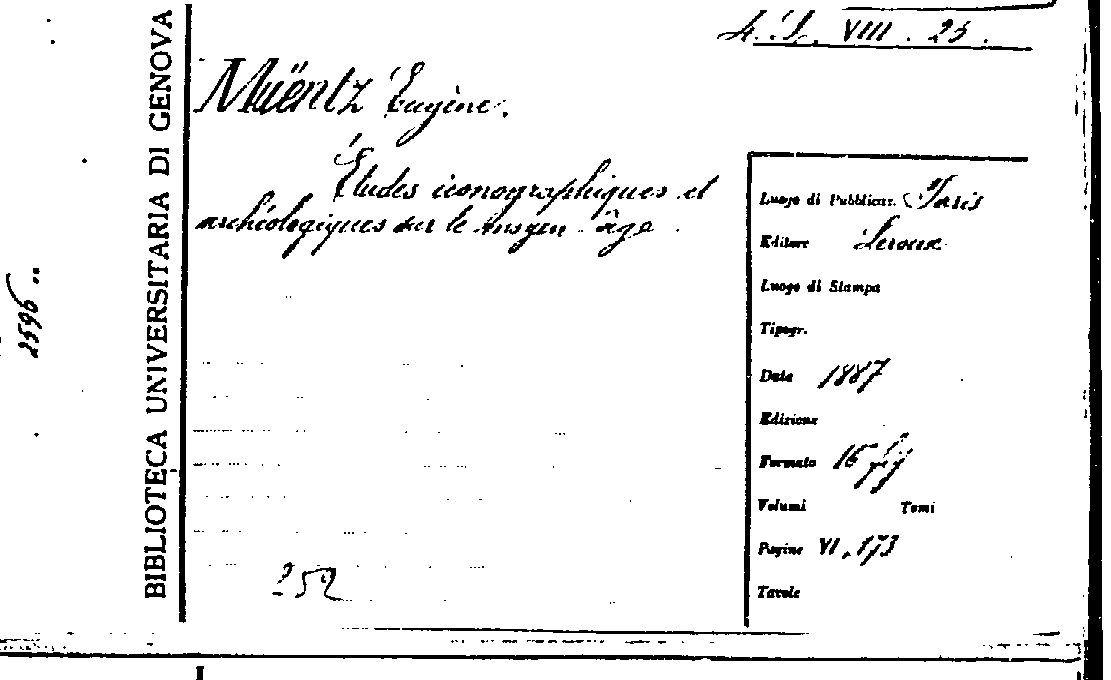 4. L. VIII. 25.
BIBLIOTECA UNIVERSITARIA DI GENOVA
Müentz Eugène.
Études iconographiques et
archéologiques sur le moyen-âge.
Luogo di Pubblicaz. Paris
Editore Leroux
Luogo di Stampa
Tipogr.
Data 1887
Edizione
Formato 16
Volumi Tomi
Pagine VI, 173
Tavole
252
2596